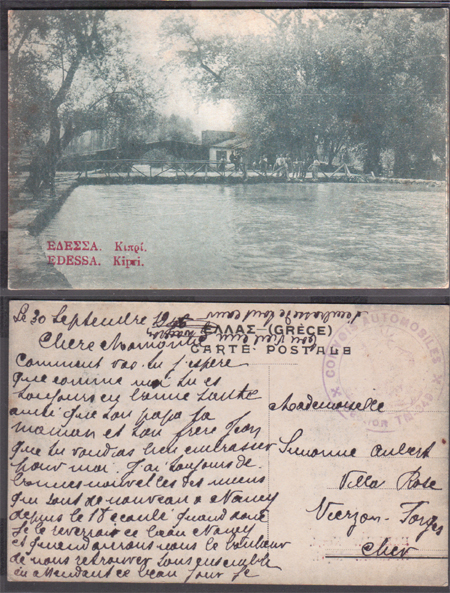 ΕΔΕΣΣΑ. Κιπρί.
EDESSA. Kipri.
Le 30 Septembre
ΕΛΛΑΣ (GRÈCE)
CARTE POSTALE
CONVOIS AUTOMOBILES
Chère Mamonne
Comment vas tu j'espère
que comme moi tu es
toujours en bonne santé
ainsi que ton papa ta
maman et ton frère
que tu voudras bien embrasser
pour moi. J'ai toujours de
bonnes nouvelles des miens
qui sont de nouveau à Nancy
depuis le 15 écoulé quand donc
je le reverrai ce beau Nancy
et quand aurons nous le bonheur
de nous retrouver tous ensemble
en attendant ce beau jour je
Mademoiselle
Simonne Aubert
Villa Rose
Vierzon-Forges
Cher